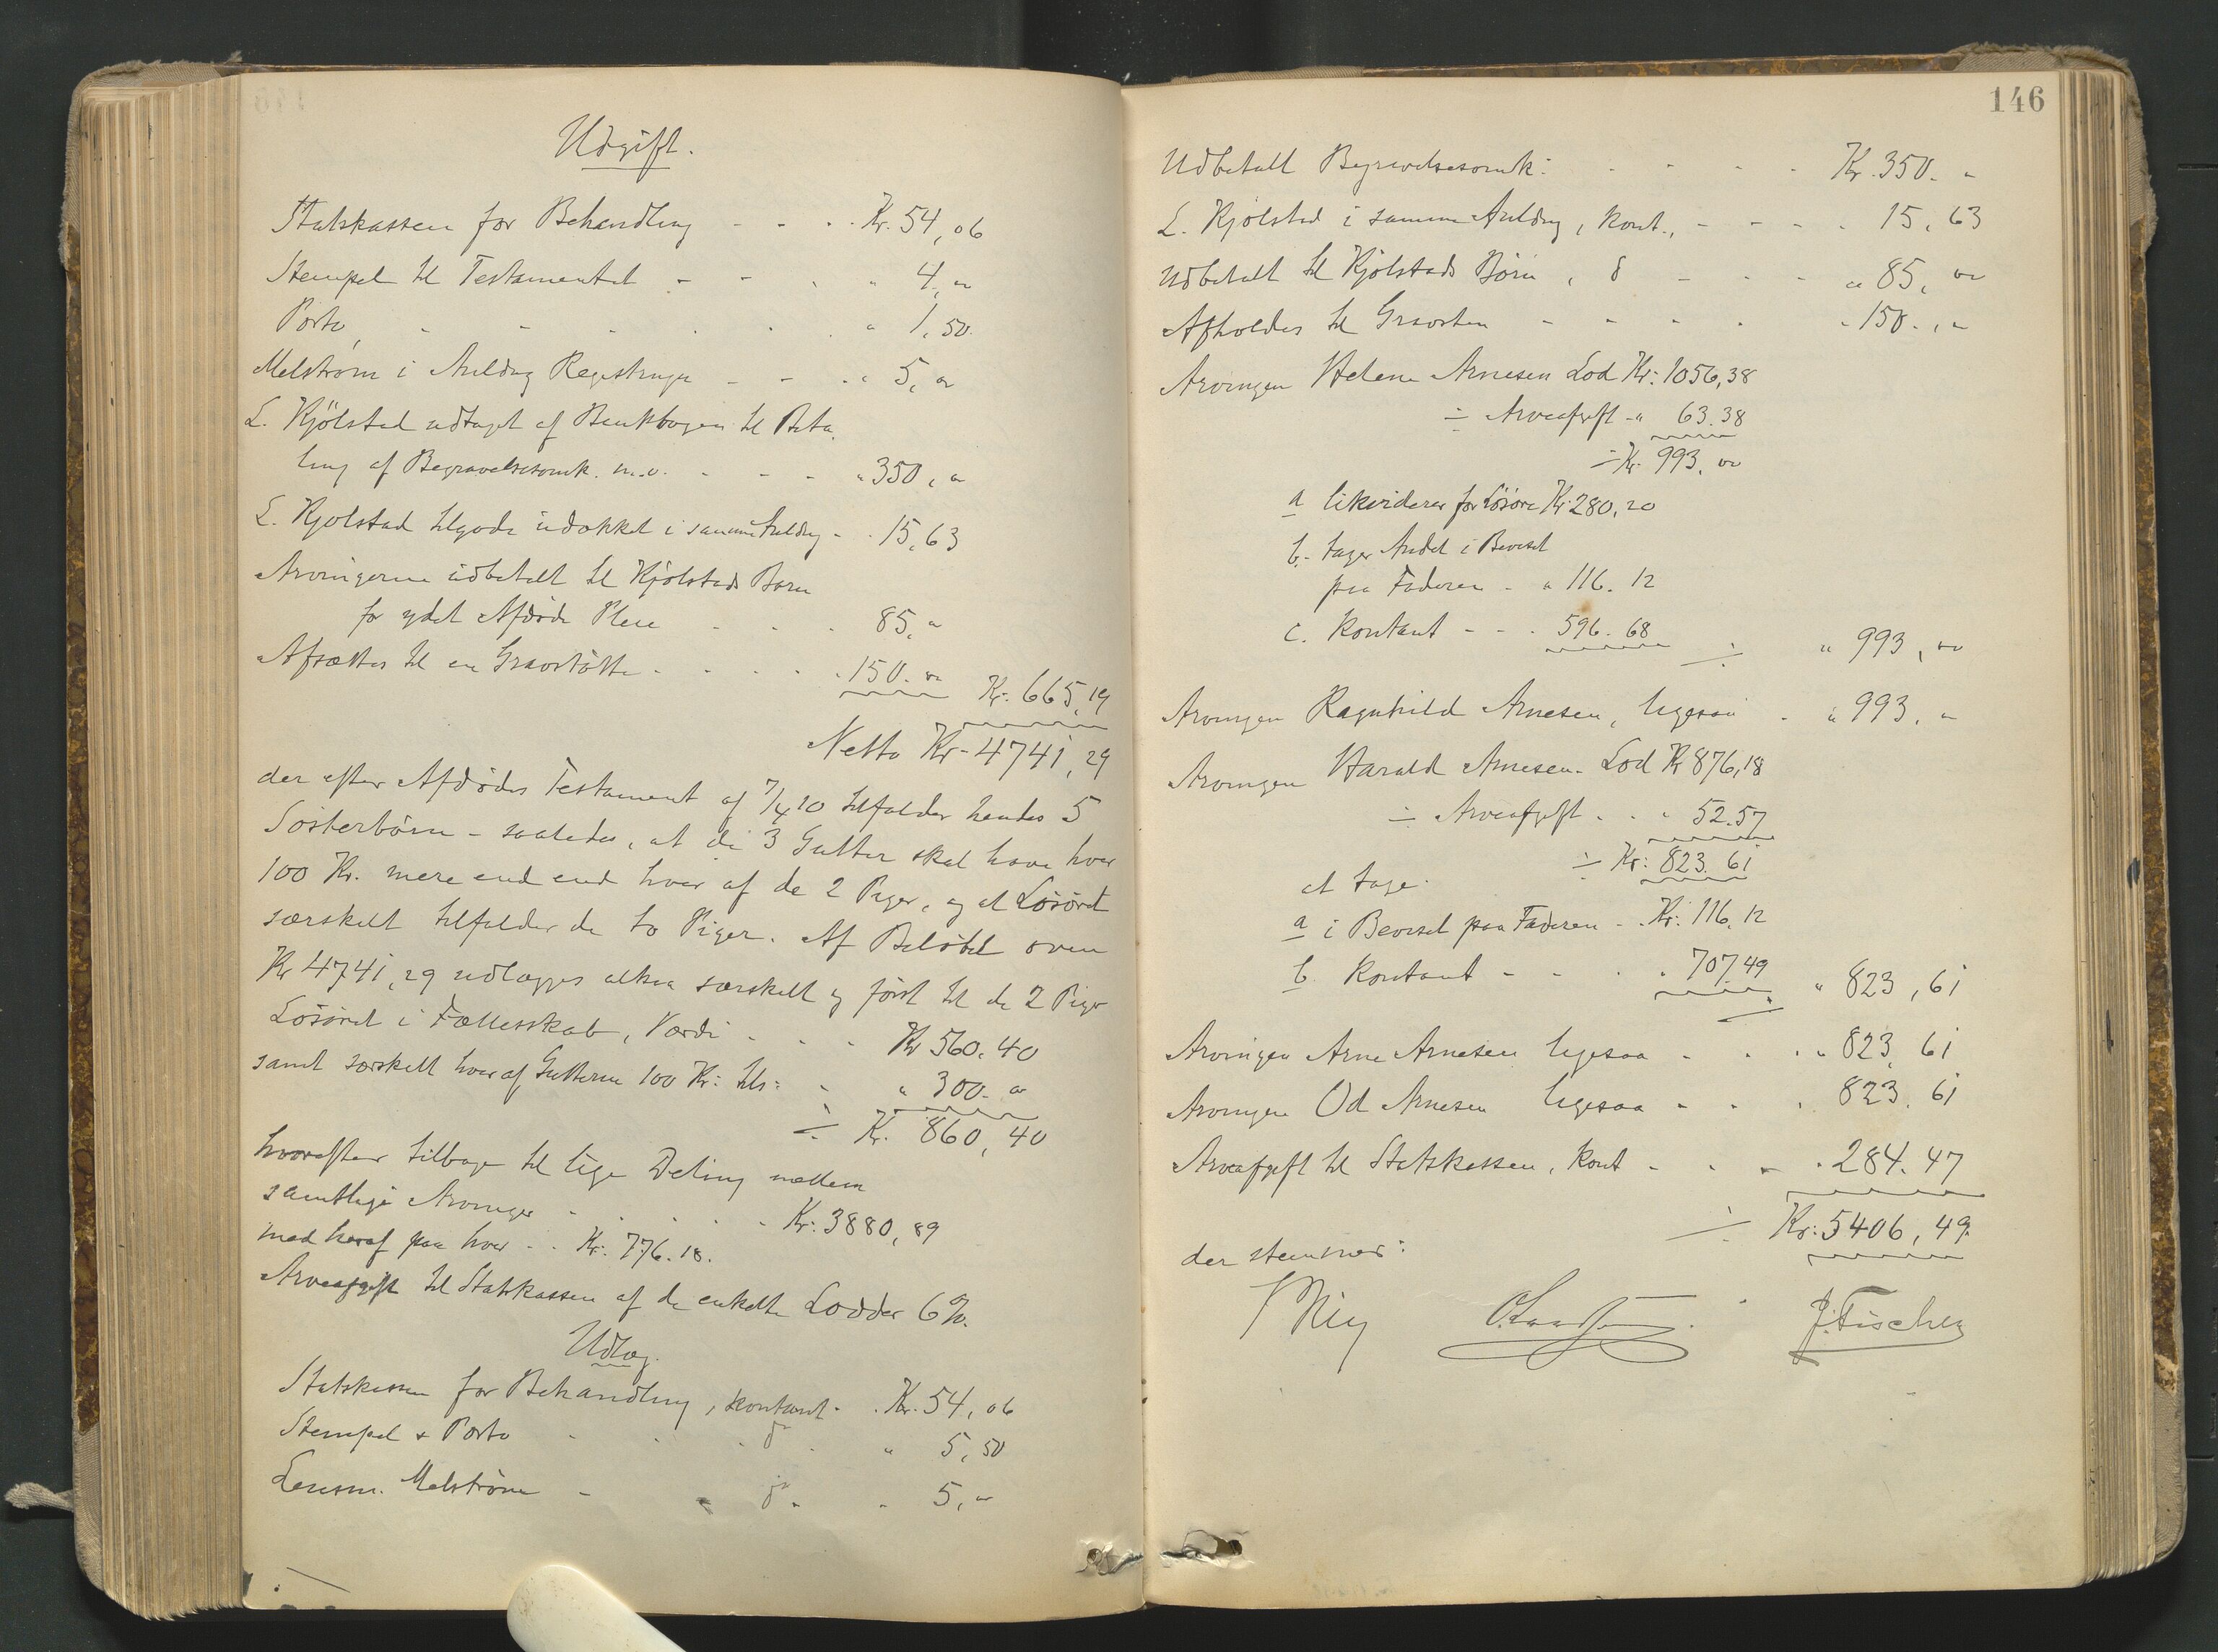 Udgift.
Statskassen for Behandling - - - Kr. 54,06
Stempel til Testamentet - - - " 4, "
Porto, - - - - - " 1,50.
Melström i Anldng Registringen - - " 5, "
L. Kjölstad udtaget af Bankbogen til Beta-
ling af Begravelsesomk. m.v. - - - " 350, "
L. Kjölstad tilgode udækket i samme Anldng - " 15,63
Arvingerne udbetalt til Kjölstads Barn
for ydet Afdöde Pleie - - - 85, "
Afsættes til en Gravstötte - - - - " 150. " Kr. 665,19
Netto Kr. 4741,29
der efter Afdödes Testament af 7/4 10 tilfalder hendes 5
Sösterbörn - saaledes, at de 3 Gutter skal have hver
100 Kr. mere end end hver af de 2 Piger, og at Lösöret
særskilt tilfalder de to Piger. Af Belöbet oven
Kr 4741,29 udlægges altsaa særskilt og först til de 2 Piger
Lösöret i Fællesskab, Værdi - - - Kr 560.40
samt særskilt hver af Gutterne 100 Kr: tils: - " 300. "
÷ Kr. 860,40
hvorefter tilbage til lige Deling mellem
samtlige Arvinger - - - - - Kr: 3880,89
med heraf paa hver - - Kr: 776.18.
Arveafgift til Statskassen af de enkelte Lodder 6%.
Udlæg.
Statskassen for Behandling, kontant - . Kr. 54,06
Stempel & Porto - - - do - " 5,50
Lensm. Melström - - do - " 5, "
146
Udbetalt Begravelsesomk: - - - - Kr. 350. "
L. Kjölstad i samme Anldng, kont., - - - " 15,63
Udbetalt til Kjölstads Börn, do - - - " 85, "
Afholdes til Gravsten - - - - " 150., "
Arvingen Helene Arnesen Lod Kr: 1056,38
÷ Arveafgift - " 63.38
÷ Kr. 993. "
a likviderer for Lösöre Kr 280,20
b. tager Andel i Beviset
paa Faderen - " 116.12
c. Kontant - - - 596.68 ÷ " 993, "
Arvingen Ragnhild Arnesen, ligesaa - " 993. "
Arvingen Harald Arnesen. Lod Kr 876,18
÷ Arveafgift - - " 52.57
÷ Kr: 823.61
at tage:
a i Beviset paa Faderen - . Kr: 116,12
b Kontant - - - " 707.49 " 823,61
Arvingen Arne Arnesen ligesaa - - - " 823,61
Arvingen Od Arnesen ligesaa - - - 823.61
Arveafgift til Statskassen, kont - - - " 284.47
÷ Kr: 5406,49.
der stemmer:
J. Fischer